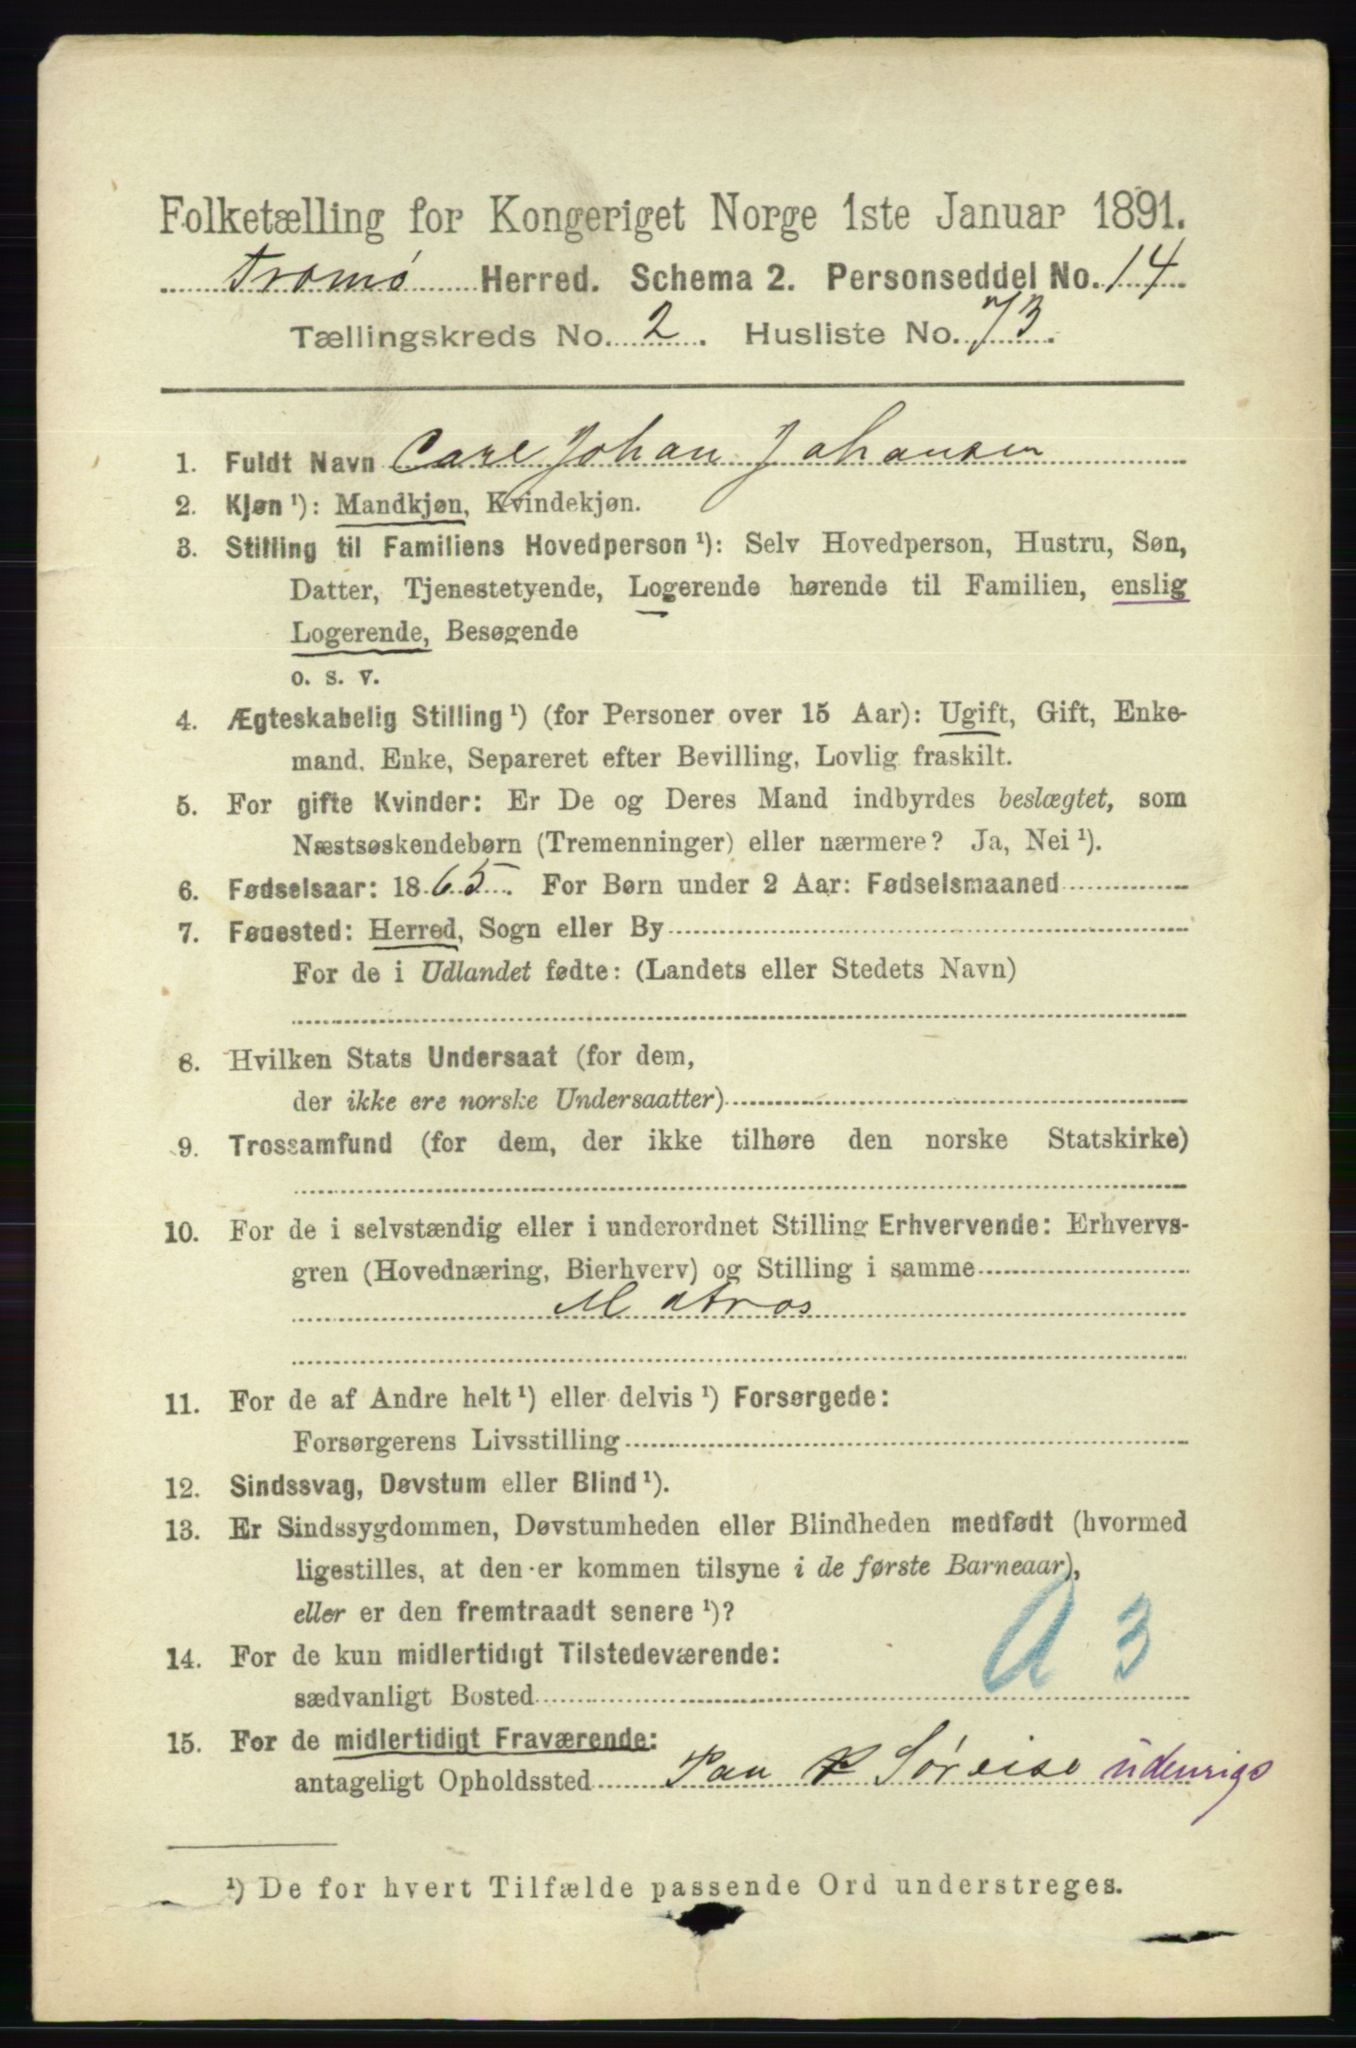 Folketælling for Kongeriget Norge 1ste Januar 1891.
Tromø Herred. Schema 2. Personseddel No. 14
Tællingskreds No. 2. Husliste No. 73.
1. Fuldt Navn Carl Johan Johansen
2. Kjøn ¹): Mandkjøn, Kvindekjøn.
3. Stilling til Familiens Hovedperson ¹): Selv Hovedperson, Hustru, Søn,
Datter, Tjenestetyende, Logerende hørende til Familien, enslig
Logerende, Besøgende
o. s. v.
4. Ægteskabelig Stilling ¹) (for Personer over 15 Aar): Ugift, Gift, Enke-
mand, Enke, Separeret efter Bevilling, Lovlig fraskilt.
5. For gifte Kvinder: Er De og Deres Mand indbyrdes beslægtet, som
Næstsøskendebørn (Tremenninger) eller nærmere? Ja, Nei ¹).
6. Fødselsaar: 1865. For Børn under 2 Aar: Fødselsmaaned
7. Fødested: Herred, Sogn eller By
For de i Udlandet fødte: (Landets eller Stedets Navn)
8. Hvilken Stats Undersaat (for dem,
der ikke ere norske Undersaatter)
9. Trossamfund (for dem, der ikke tilhøre den norske Statskirke)
10. For de i selvstændig eller i underordnet Stilling Erhvervende: Erhvervs-
gren (Hovednæring, Bierhverv) og Stilling i samme
Matros
11. For de af Andre helt ¹) eller delvis ¹) Forsørgede:
Forsørgerens Livsstilling
12. Sindssvag, Døvstum eller Blind ¹).
13. Er Sindssygdommen, Døvstumheden eller Blindheden medfødt (hvormed
ligestilles, at den er kommen tilsyne i de første Barneaar),
eller er den fremtraadt senere ¹)?
A 3
14. For de kun midlertidigt Tilstedeværende:
sædvanligt Bosted
15. For de midlertidigt Fraværende:
antageligt Opholdssted Paa Søreise udenrigs
¹) De for hvert Tilfælde passende Ord understreges.